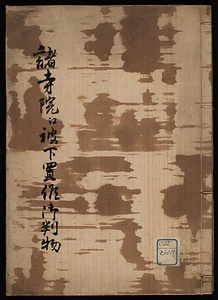 諸寺院江被下置候御判物